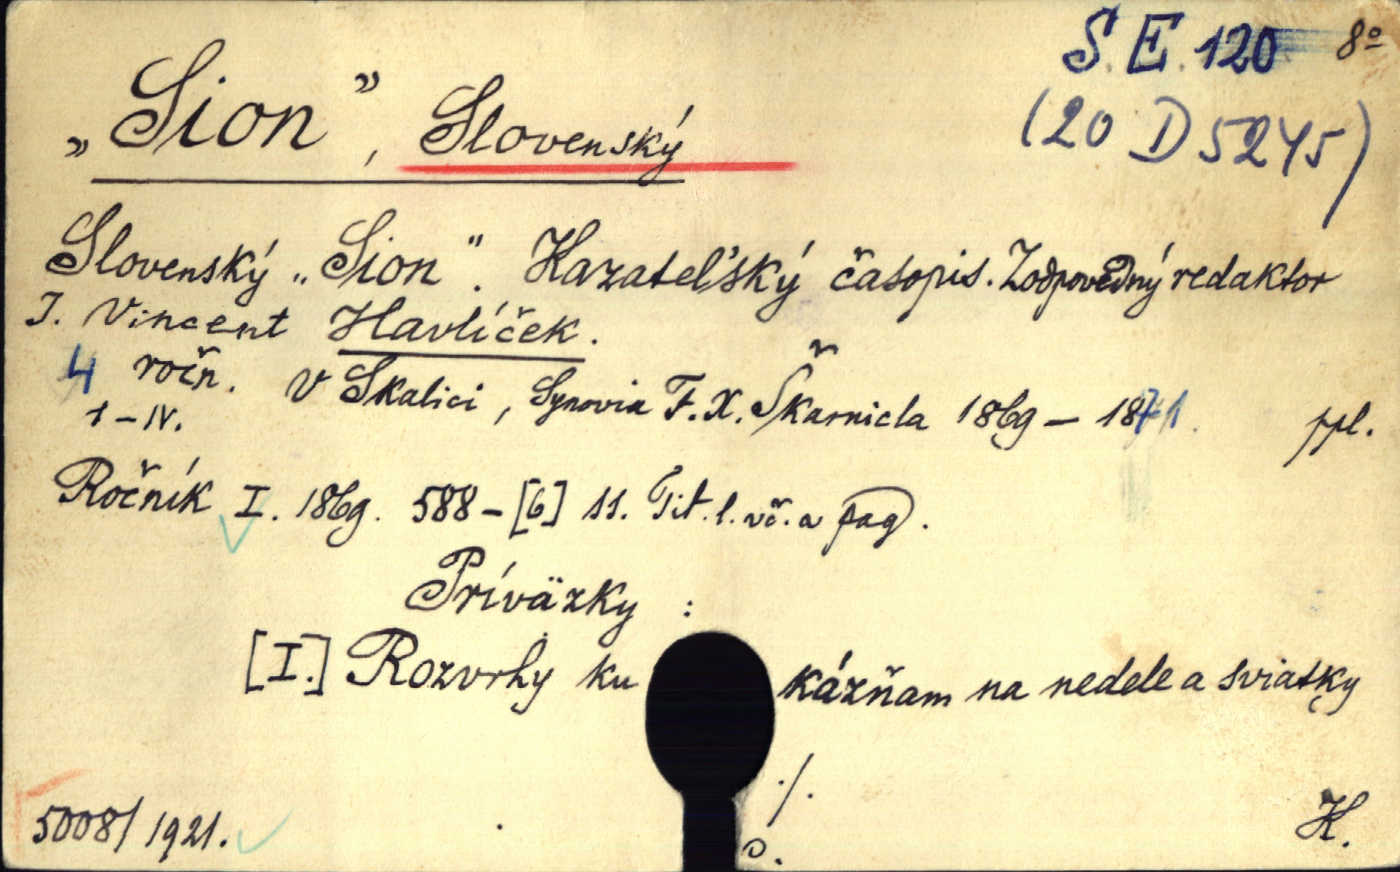 S.E. 120 8º
(20 D 5245)
„Sion”, Slovenský
Slovenský „Sion”. Kazateľský časopis. Zodpovědný redaktor
J. Vincent Havlíček.
4 ročn. V Skalici, Synovia F. X. Škarnicla 1869 – 1871. ppl.
I – IV.
Ročník I. 1869. 588 – [6] ss. Tit. l. vč. a pag.
Príväzky :
[I.] Rozvrhy ku kázňam na nedele a sviatky
./.
5008/1921.
H.